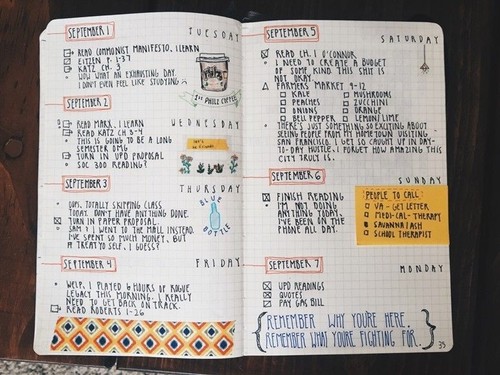 SEPTEMBER 1
TUESDAY
READ COMMUNIST MANIFESTO, ILEARN
EITZEN P. 1-37
KATZ CH. 3
WOW WHAT AN EXHAUSTING DAY.
I DON'T EVEN FEEL LIKE STUDYING
1ST PHILZ COFFEE
SEPTEMBER 2
WEDNESDAY
READ MARX, ILEARN
READ KATZ CH 3-4
THIS IS GOING TO BE A LONG
SEMESTER OMG
TURN IN UPD PROPOSAL
SOC 300 READING?
SEPTEMBER 3
THURSDAY
OOPS, TOTALLY SKIPPING CLASS
TODAY. DON'T HAVE ANYTHING DONE.
TURN IN PAPER PROPOSAL
SAM & I WENT TO THE MALL INSTEAD.
I'VE SPENT SO MUCH MONEY, BUT
A TREAT YO SELF, I GUESS?
BLUE
BOTTLE
SEPTEMBER 4
FRIDAY
WELP, I PLAYED 6 HOURS OF ROGUE
LEGACY THIS MORNING. I REALLY
NEED TO GET BACK ON TRACK.
READ ROBERTS 1-26
SEPTEMBER 5
SATURDAY
READ CH. 1 O'CONNOR
I NEED TO CREATE A BUDGET
OF SOME KIND. THIS SHIT IS
NOT OKAY.
FARMERS MARKET 9-12
KALE MUSHROOMS
PEACHES ZUCCHINI
ONIONS ORANGE
BELL PEPPER LEMON/LIME
THERE'S JUST SOMETHING SO EXCITING ABOUT
SEEING PEOPLE FROM MY HOMETOWN VISITING
SAN FRANCISCO. I GET SO CAUGHT UP IN DAY-
TO-DAY HUSTLE, I FORGET HOW AMAZING THIS
CITY TRULY IS.
SEPTEMBER 6
SUNDAY
FINISH READING
I'M NOT DOING
ANYTHING TODAY.
I'VE BEEN ON THE
PHONE ALL DAY.
PEOPLE TO CALL:
VA - GET LETTER
MEDI-CAL - THERAPY
SAVANNA/ASH
SCHOOL THERAPIST
SEPTEMBER 7
MONDAY
UPD READINGS
QUOTES
PAY GAS BILL
REMEMBER WHY YOU'RE HERE.
REMEMBER WHAT YOU'RE FIGHTING FOR.
35